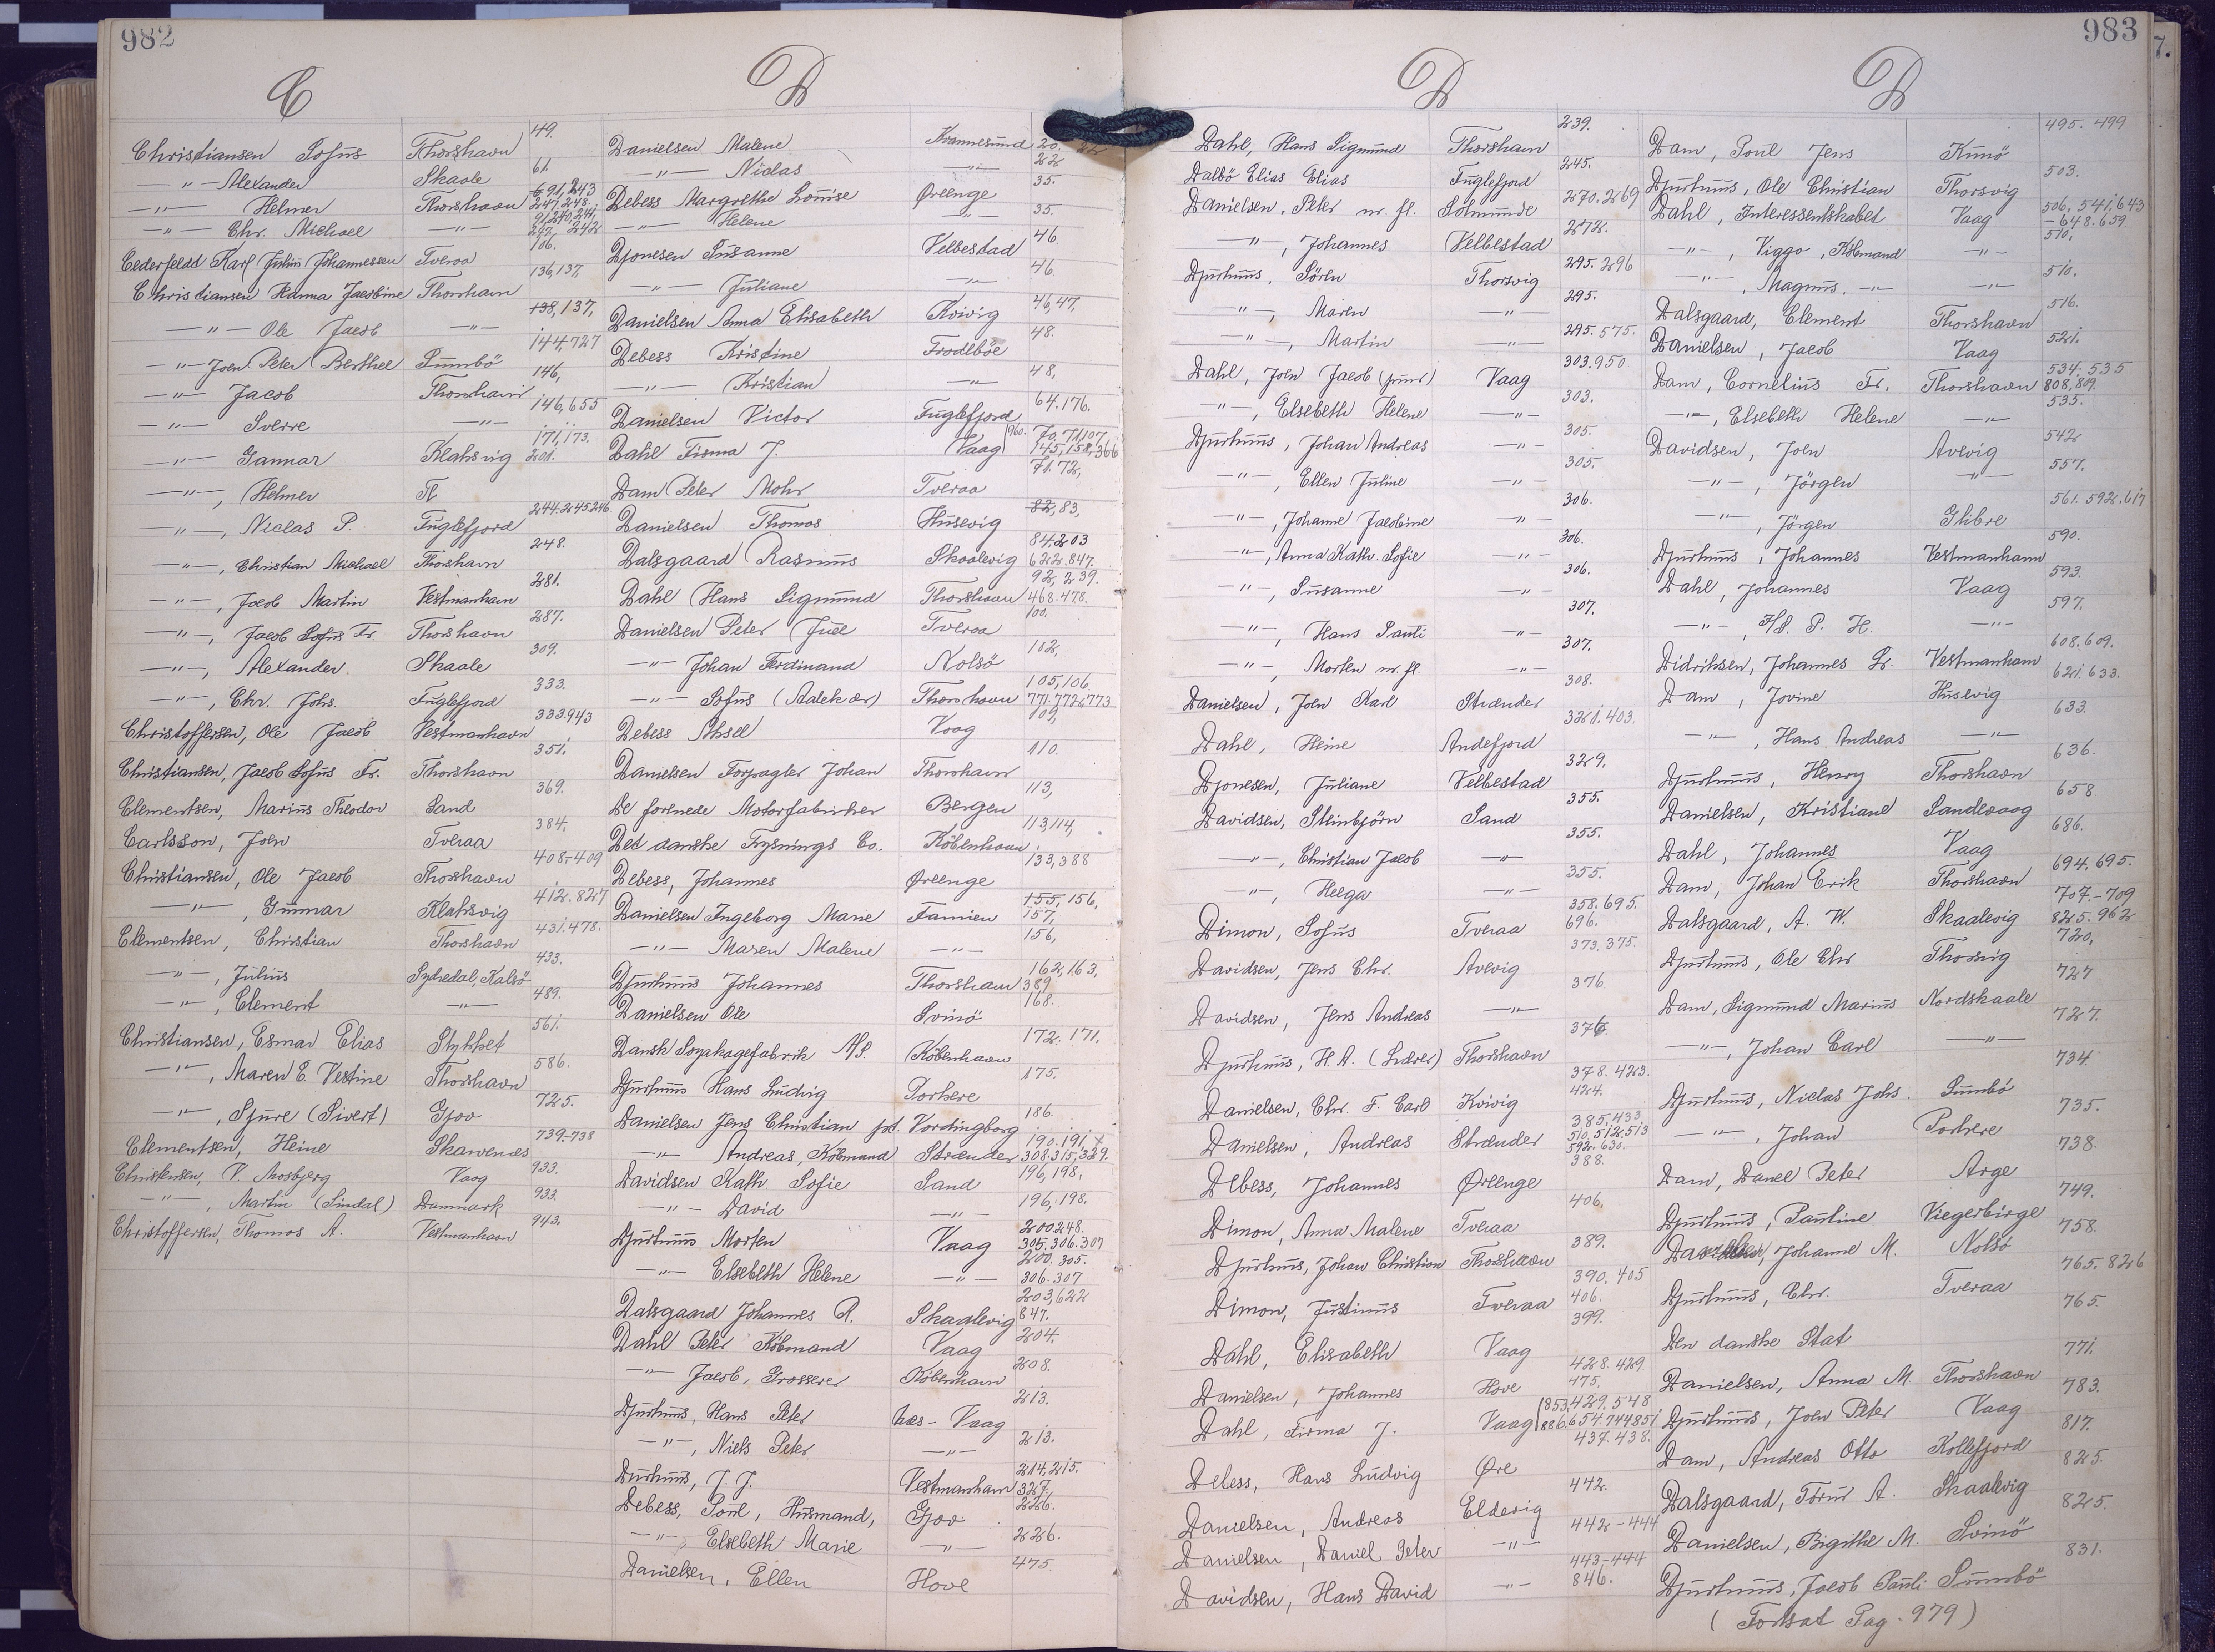 982
C
Christiansen Sofus Thorshavn 49.
—"— Alexander Skaale 61.
—"— Helmer Thorshavn 91,243 247,248
—"— Chr. Michael —"— 91,240,241, 242
Cederfeldt Karl Julius Johannessen Tveraa 106.
Christiansen Hanna Jacobine Thorshavn 136,137,
—"— Ole Jacob —"— 138,137,
—"— Joen Peter Berthel Sumbö 144,727
—"— Jacob Thorshavn 146,
—"— Sverre —"— 146,655
—"— Gunnar Klaksvig 171,173. 201.
—"—, Helmer
—"—, Niclas P. Fuglefjord 244.245246
—"—, Christian Michael Thorshavn 248.
—"—, Jacob Martin Vestmanhavn 281.
—"—, Jacob Sofus Fr. Thorshavn 287.
—"—, Alexander. Skaale 309.
—"—, Chr. Johs. Fuglefjord 333.
Christoffersen, Ole Jacob Vestmanhavn 333.943
Christiansen, Jacob Sofus Fr. Thorshavn 351.
Clementsen, Marius Theodor Sand 369.
Carlsson, Joen Tveraa 384.
Christiansen, Ole Jacob Thorshavn 408-409
—"—, Gunnar Klaksvig 412.827
Clementsen, Christian Thorshavn 431.478.
—"—, Julius Sydredal, Kalsö 433.
—"—, Clement —"— 489.
Christiansen, Esmar Elias Stykket 561.
—"—, Maren E. Vestine Thorshavn 586.
—"—, Sjure (Sivert) Gjov 725.
Clementsen, Heine Skarvenes 739-738
Christensen, V. Mosbjerg Vaag 933.
—"—, Martin (Sindal) Danmark 933.
Christoffersen, Thomas A. Vestmanhavn 943.
D
Danielsen Malene Hvannesund 20. 22
—"— Niclas —"— 22
Debess Margrethe Louise Ørenge 35.
—"— Helene —"— 35.
Djonesen Susanne Velbestad 46
—"— Juliane —"— 46
Danielsen Anna Elisabeth Kvivig 46,47,
Debess Kristine Frodebøe 48.
—"— Kristian —"— 48,
Danielsen Victor Fuglefjord 64.176.
Dahl Firma J. Vaag 960. 70,71,107, 145,158,366
Dam Peter Mohr Tveraa 71.72,
Danielsen Thomas Husevig 82,83,
Dalsgaard Rasmus Skaalevig 84.203 622.847.
Dahl Hans Sigmund Thorshavn 92,239. 468.478.
Danielsen Peter Juel Tveraa 100.
—"— Johan Ferdinand Nolsö 102,
—"— Sofus Thorshavn 105,106 771.772,773
Debess Aksel Vaag 109,
Danielsen Forpagter Johan Thorshavn 110.
De forenede Motorfabriker Bergen 113,
Det danske Frysnings Co. København 113,114,
Debess, Johannes Ørenge 133,388
Danielsen Ingeborg Marie Famien 155,156, 157,
—"— Maren Malene —"— 156,
Djurhuus Johannes Thorshavn 162,163, 389
Danielsen Ole Svinö 168.
Dansk Soyakagefabrik A/S. København 172.171.
Djurhuus Hans Ludvig Porkere 175.
Danielsen Jens Christian pt. Vordingborg 186.
—"— Andreas, Købmand Strænder 190.191, 308.315,329.
Davidsen Kath. Sofie Sand 196,198,
—"— David —"— 196,198.
Djurhuus Morten Vaag 200248. 305.306.307
—"— Elsebeth Helene —"— 200.305. 306.307
Dalsgaard Johannes P. Skaalevig 203,622 847.
Dahl Peter Købmand Vaag 204.
—"— Jacob, Grosserer København 208.
Djurhuus, Hans Peter Næs-Vaag 213.
—"—, Niels Peter —"— 213.
Durhuus, J. J. Vestmanhavn 214,215. 327.
Debess, Poul, Husmand, Gjov 226.
—"— Elsebeth Marie —"— 226.
Danielsen, Ellen Hove 475.
983
D
Dahl, Hans Sigmund Thorshavn 239.
Dalbö Elias Elias Fuglefjord 245.
Danielsen, Peter m. fl. Solmunde 270.269
—"—, Johannes Velbestad 272.
Djurhuus, Sören Thorsvig 295.296
—"—, Maren —"— 295.
—"—, Martin —"— 295.575.
Dahl, Joen Jacob (junr) Vaag 303.950
—"—, Elsebeth Helene —"— 303.
Djurhuus, Johan Andreas —"— 305.
—"—, Ellen Juline —"— 305.
—"—, Johanne Jacobine —"— 306.
—"—, Anna Kath. Sofie —"— 306.
—"—, Susanne —"— 306.
—"—, Hans Pauli —"— 307.
—"—, Morten m. fl. —"— 307.
Danielsen, Joen Karl Strænder 308.
Dahl, Heine Andefjord 321.403.
Djonesen, Juliane Velbestad 329.
Davidsen, Steinbjörn Sand 355.
—"—, Christian Jacob —"— 355.
—"—, Helga —"— 355.
Dimon, Sofus Tveraa 358.695. 696.
Davidsen, Jens Chr. Avevig 373.375.
Davidsen, Jens Andreas —"— 376
Djurhuus, H. A. (Lærer) Thorshavn 376.
Danielsen, Chr. F. Carl Kvivig 378.423. 424.
Danielsen, Andreas Strænder 385,433 510.512.513 592.630.
Debess, Johannes Ørenge 388.
Dimon, Anna Malene Tveraa 406.
Djurhuus, Johan Christian Thorshavn 389.
Dimon, Justinus Tveraa 390.405 406.
Dahl, Elisabeth Vaag 399.
Danielsen, Johannes Hove 428.429 475.
Dahl, Firma J. Vaag 853,429.548 886,654.744851
Debess, Hans Ludvig Øre 437.438.
Danielsen, Andreas Eldevig 442.
Danielsen, Daniel Peter —"— 442-444
Davidsen, Hans David —"— 443-444 846.
D
Dam, Poul Jens Kunö 495.499
Djurhuus, Ole Christian Thorsvig 503.
Dahl, Interessentskabet Vaag 506.541,643 -648.659
—"—, Viggo, Købmand —"— 510.
—"—, Magnus, —"— —"— 510.
Dalsgaard, Clement Thorshavn 516.
Danielsen, Jacob Vaag 521.
Dam, Cornelius Fr. Thorshavn 534.535 808,809.
—"—, Elsebeth Helene —"— 535.
Davidsen, Joen Avevig 542
—"—, Jörgen —"— 557.
—"—, Jörgen Glibre 561.592.617
Djurhuus, Johannes Vestmanhavn 590.
Dahl, Johannes Vaag 593.
—"—, P. H. —"— 597.
Didriksen, Johannes Sr. Vestmanhavn 608.609.
Dam, Jovine Husevig 621.633.
—"—, Hans Andreas —"— 633.
Djurhuus, Henry Thorshavn 636.
Danielsen, Kristiane Sandevaag 658.
Dahl, Johannes Vaag 686.
Dam, Johan Erik Thorshavn 694.695.
Dalsgaard, A. W. Skaalevig 707.-709 825.962
Djurhuus, Ole Chr. Thorsvig 720,
Dam, Sigmund Marius Nordskaale 727
—"—, Johan Carl —"— 727.
Djurhuus, Niclas Johs. Sumbö 734
—"—, Johan Porkere 735.
Dam, Danel Peter Arge 738.
Djurhuus, Pauline Viegerbirge 749.
Johanne M. Nolsö 758.
Djurhuus, Chr. Tveraa 765.826
Den danske Stat 765.
Danielsen, Anna M. Thorshavn 771.
Djurhuus, Joen Peter Vaag 783.
Dam, Andreas Otto Kollefjord 817.
Dalsgaard, A. Skaalevig 825.
Danielsen, Birgithe M. Svinö 825.
Djurhuus, Jacob Pauli Sumbö 831.
(Fortsat Pag. 979)
7.